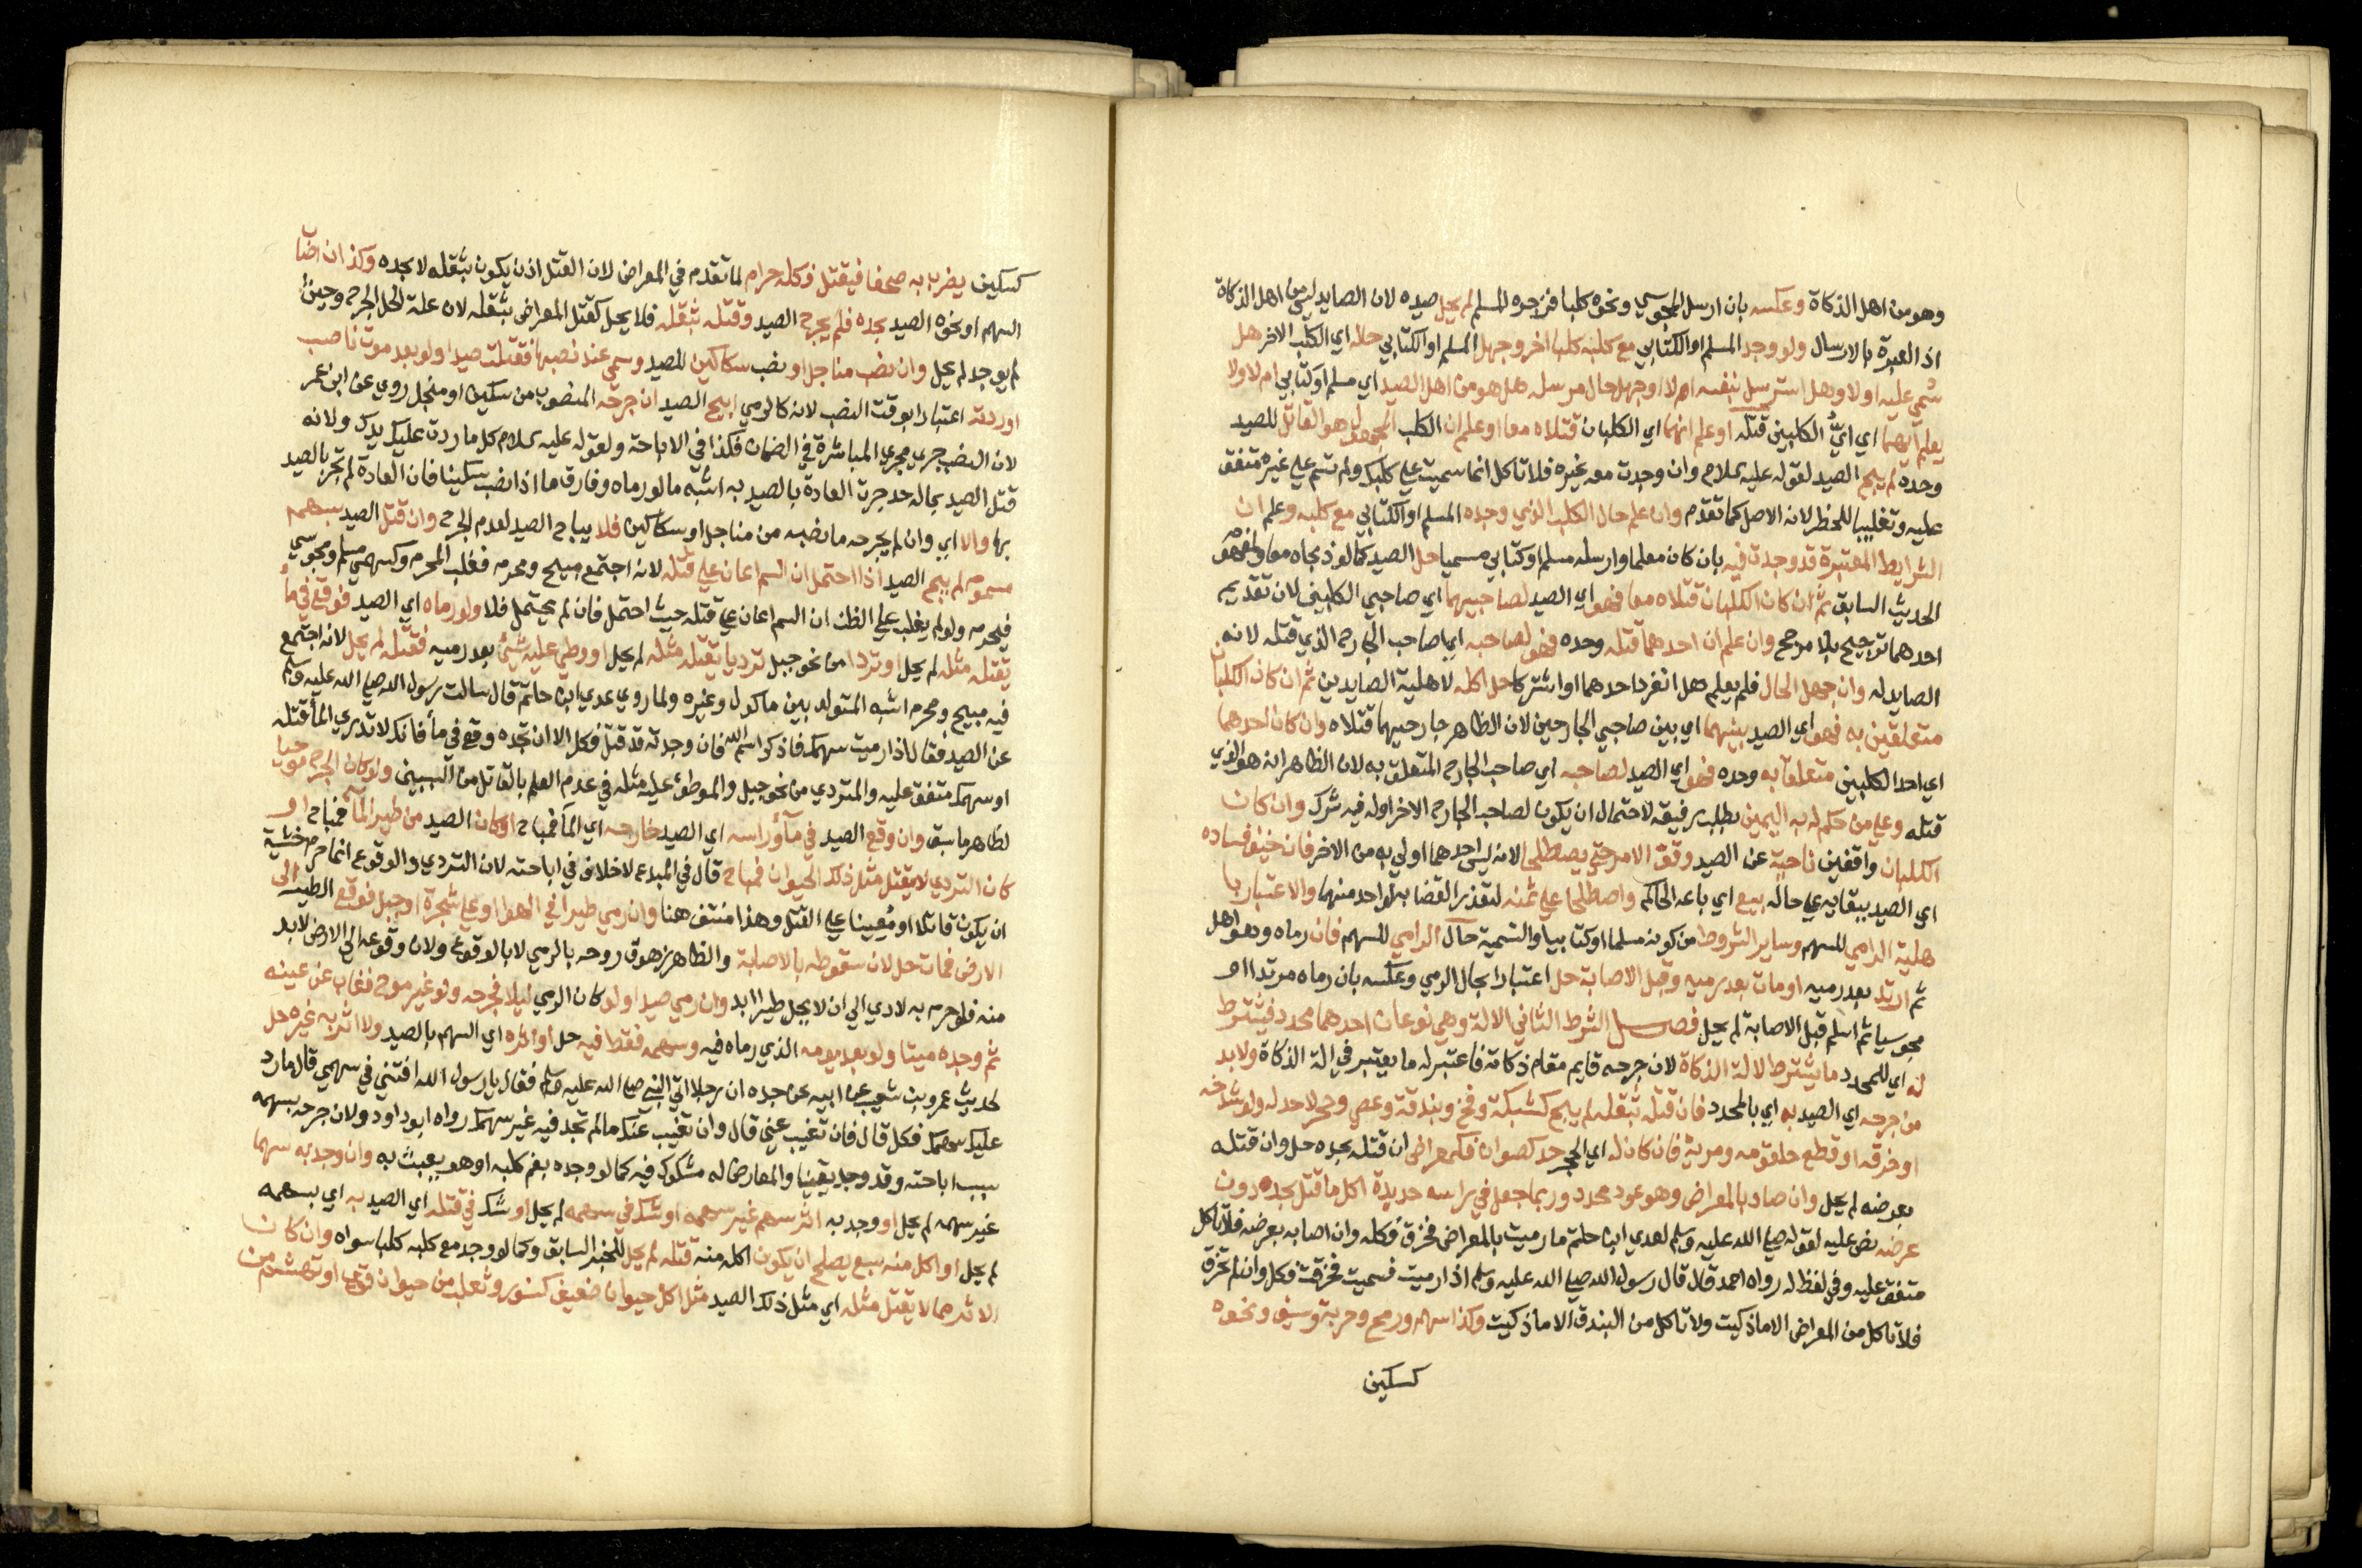 وهو من اهل الذكاة وعكسه بان ارسل المجوسي ونحوه كلبا فزجره المسلم لم يحل صيده لان الصايد ليس من اهل الذكاة
اذ العبرة بالارسال ولو وجد المسلم او الكتابي مع كلبه كلبا اخر وجهل المسلم او الكتابي حاله اي الكلب الاخر هل
سُمي عليه او لا وهل استرسل بنفسه ام لا او جهل حال مرسله هل هو من اهل الصيد اي مسلم او كتابي ام لا ولا
يعلم ايهما اي ايُّ الكلبين قتله او علم انهما اي الكلبان قتلاه معا او علم ان الكلب المجهول هو القاتل للصيد
وحده لم يبح الصيد لقوله عليه السلام وان وجدت معه غيره فلا تاكل انما سميت علي كلبك ولم تسم علي غيره متفق
عليه وتغليبا للحظر لانه الاصل كما تقدم وان علم حال الكلب الذي وجده المسلم او الكتابي مع كلبه وعلم ان
الشرايط المعتبرة قد وجدت فيه بان كان معلما وارسله مسلم او كتابي مسميا حل الصيد كما لو ذبحاه معا ولمفهوم
الحديث السابق ثم ان كان الكلبان قتلاه معا فهو اي الصيد لصاحبيهما اي صاحبي الكلبين لان تقديم
احدهما ترجيح بلا مرجح وان علم ان احدهما قتله وحده فهو لصاحبه اي صاحب الجارح الذي قتله لانه
الصايد له وان جهل الحال فلم يعلم هل انفرد احدهما او اشتركا حل اكله لاهلية الصايدين ثم ان كان الكلبان
متعلقين به فهو اي الصيد بينهما اي بين صاحبي الجارحين لان الظاهر جارحيهما قتلاه وان كان احدهما
اي احد الكلبين متعلقا به وحده فهو اي الصيد لصاحبه اي صاحب الجارح المتعلق به لان الظاهر انه هو الذي
قتله وعلي من حكم له به اليمين بطلب رفيقه لاحتمال ان يكون لصاحب الجارح الاخر او له فيه شرك وان كان
الكلبان واقفين ناحية عن الصيد وقف الامر حتي يصطلحا لانه ليس احدهما اولي به من الاخر فان خيف فساده
اي الصيد ببقايه علي حاله بيع اي باعه الحاكم واصطلحا علي ثمنه لتعذر القضا به لواحد منهما والاعتبار با
هلية الرامي للسهم وساير الشروط من كونه مسلما او كتابيا والتسمية حال الرامي للسهم فان رماه وهو اهل
ثم ارتد بعد رميه او مات بعد رميه وقبل الاصابة حل اعتبارا بحال الرمي وعكسه بان رماه مرتدا او
مجوسيا ثم اسلم قبل الاصابة لم يحل فصل الشرط الثاني الالة وهي نوعان احدهما محدد فيشترط
له اي للمحدد ما يشترط لالة الذكاة لان جرحه قايم مقام ذكاته فاعتبر له ما يعتبر في الة الذكاة ولا بد
من جرحه اي الصيد به اي بالمحدد فان قتله بثقله لم يبح كشبكة وفخ وبندقة وعصي وحجر لا حد له ولو شدخه
او خرقه او قطع حلقومه ومريه فان كان له اي الحجر حد كصوان فكمعراض ان قتله بحده حل وان قتله
بعرضه لم يحل وان صاد بالمعراض وهو عود محدد وربما جعل في راسه حديدة اكل ما قتل بحده دون
عرضه نص عليه لقوله صلي الله عليه وسلم لعدي ابن حاتم ما رميت بالمعراض فخزق فكله وان اصابه بعرضه فلا تاكل
متفق عليه وفي لفظ له رواه احمد قال قال رسول الله صلي الله عليه وسلم اذا رميت فسميت فخزقت فكل وان لم تخزق
فلا تاكل من المعراض الا ما ذكيت ولا تاكل من البندق الا ما ذكيت وكذا سهم ورمح وحربة وسيف ونحوه
كسكين
كسكين يضرب به صحفا فيقتل فكله حرام لما تقدم في المعراض لان القتل اذن يكون بثقله لا بحده وكذا ان اصاب
السهم او نحوه الصيد بحده فلم يجرح الصيد وقتله بثقله فلا يحل كقتل المعراض بثقله لان علة الحل الجرح وحينئذ
لم يوجد لم يحل وان نصب مناجل او نصب سكاكين للصيد وسمي عند نصبها فقتلت صيدا ولو بعد موت ناصب
او ردته اعتبارا بوقت النصب لانه كالرمي ابيح الصيد ان جرحه المنصوب من سكين او منجل روي عن ابن عمر
لان النصب جري مجري المباشرة في الضمان فكذا في الاباحة ولقوله عليه السلام كل ما ردت عليك يدك ولانه
قتل الصيد بما له حد جرت العادة بالصيد به اشبه ما لو رماه وفارق ما اذا نصب سكينا فان العادة لم تجر بالصيد
بها والا اي وان لم يجرحه ما نصبه من مناجل او سكاكين فلا يباح الصيد لعدم الجرح وان قتل الصيد بسهم
مسموم لم يبح الصيد اذا احتمل ان السم اعان علي قتله لانه اجتمع مبيح ومحرم فغلب المحرم وكسهمي مسلم ومجوسي
فيحرم ولو لم يغلب علي الظن ان السم اعان علي قتله حيث احتمل فان لم يحتمل فلا ولو رماه اي الصيد فوقع في ماء
يقتله مثله لم يحل او تردا من نحو جبل ترديا يقتله مثله لم يحل او وطي عليه شيئ بعد رميه فقتله لم يحل لانه اجتمع
فيه مبيح ومحرم اشبه المتولد بين ماكول وغيره ولما روي عدي ابن حاتم قال سالت رسول الله صلي الله عليه وسلم
عن الصيد فقال اذا رميت سهمك فاذكر اسم الله فان وجدته قد قتل فكل الا ان تجده وقع في ماء فانك لا تدري الماء قتله
او سهمك متفق عليه والمتردي من نحو جبل والموطئ عليه مثله في عدم العلم بالقاتل من السببين ولو كان الجرح موحيا
لظاهر ما سبق وان وقع الصيد في ماء وراسه اي الصيد خارجه اي الماء فمباح او كان الصيد من طير الماء فمباح او
كان التردي لا يقتل مثل ذلك الحيوان فمباح قال في المبدع لا خلاف في اباحته لان التردي والوقوع انما حرم خشية
ان يكون قاتلا او معينا علي القتل وهذا منتف هنا وان رمي طيرا في الهوا او علي شجرة او جبل فوقع الطير الي
الارض فمات حل لان سقوطه بالاصابة والظاهر زهوق روحه بالرمي لا بالوقوع ولان وقوعه الي الارض لا بد
منه فلو حرم به لادي الي ان لا يحل طيرا ابدا وان رمي صيدا ولو كان الرمي ليلا فجرحه ولو غير موح فغاب عن عينه
ثم وجده ميتا ولو بعد يومه الذي رماه فيه وسهمه فقط فيه حل او اثره اي السهم بالصيد ولا اثر به غيره حل
لحديث عمرو بن شعيب عن ابيه عن جده ان رجلا اتي النبي صلي الله عليه وسلم فقال يا رسول الله افتني في سهمي قال ما رد
عليك سهمك فكل قال فان تغيب عني قال وان تغيب عنك ما لم تجد فيه غير سهمك رواه ابو داود ولان جرحه بسهمه
سبب اباحته وقد وجد يقينا والمعارض له مشكوك فيه كما لو وجده بفم كلبه او هو يعبث به وان وجد به سهما
غير سهمه لم يحل او وجد به اثر سهم غير سهمه او شك في سهمه لم يحل او شك في قتله اي الصيد به اي بسهمه
لم يحل او اكل منه سبع يصلح ان يكون اكله منه قتله لم يحل للخبر السابق وكما لو وجد مع كلبه كلبا سواه وان كان
الاثر مما لا يقتل مثله اي مثل ذلك الصيد مثل اكل حيوان ضعيف كسنور وثعلب من حيوان قوي او تهشم من